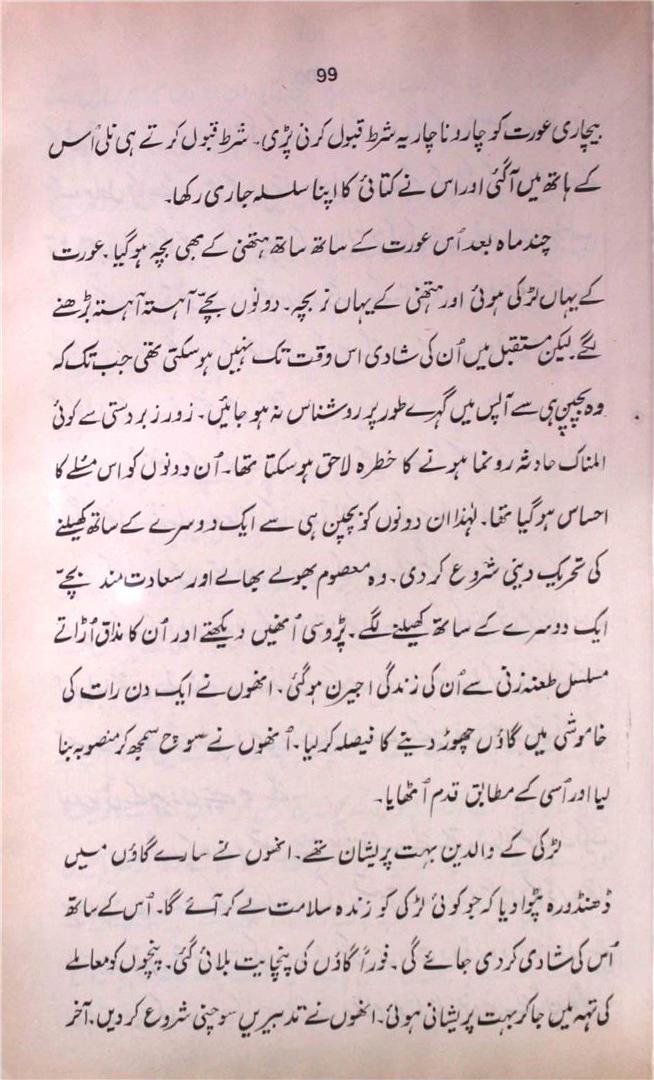 99
بیچاری عورت کو چار و ناچار یہ شرط قبول کرنی پڑی۔ شرط قبول کرتے ہی نلی اُس
کے ہاتھ میں آگئی اور اس نے کتائی کا اپنا سلسلہ جاری رکھا۔
چند ماہ بعد اُس عورت کے ساتھ ساتھ ہتھنی کے بھی بچہ ہوگیا۔ عورت
کے یہاں لڑکی ہوئی اور ہتھنی کے یہاں نر بچہ۔ دونوں بچّے آہستہ آہستہ بڑھنے
لگے۔ لیکن مستقبل میں اُن کی شادی اس وقت تک نہیں ہوسکتی تھی جب تک کہ
وہ بچپن ہی سے آپس میں گہرے طور پر روشناس نہ ہو جائیں۔ زور زبردستی سے کوئی
المناک حادثہ رونما ہونے کا خطرہ لاحق ہوسکتا تھا۔ اُن دونوں کو اس مسٔلے کا
احساس ہوگیا تھا۔ لہٰذا ان دونوں کو بچپن ہی سے ایک دوسرے کے ساتھ کھیلنے
کی تحریک دینی شروع کردی۔ وہ معصوم بھولے بھالے اور سعادت مند بچّے
ایک دوسرے کے ساتھ کھیلنے لگے۔ پڑوسی اُنھیں دیکھتے اور اُن کا مذاق اُڑاتے
مسلسل طعنہ زنی سے اُن کی زندگی اجیرن ہوگئی۔ انھوں نے ایک دن رات کی
خاموشی میں گاؤں چھوڑ دینے کا فیصلہ کرلیا۔ اُنھوں نے سوچ سمجھ کر منصوبہ بنا
لیا اور اُسی کے مطابق قدم اُٹھایا۔
لڑکی کے والدین بہت پریشان تھے۔ انھوں نے سارے گاؤں میں
ڈھنڈورہ پٹوادیا کہ جو کوئی لڑکی کو زندہ سلامت لے کر آئے گا۔ اُس کے ساتھ
اُس کی شادی کردی جائے گی۔ فوراً گاؤں کی پنچایت بلائی گئی۔ پنچوں کو معاملے
کی تہہ میں جاکر بہت پریشانی ہوئی۔ انھوں نے تدبیریں سوچنی شروع کردیں۔ آخر